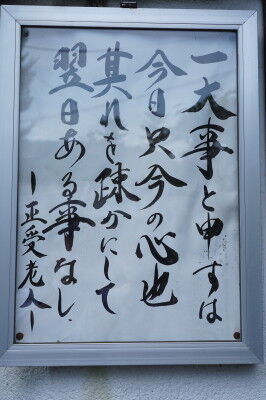 一大事と申すは
今日只今の心也
其れを疎かにして
翌日ある事なし.
ー正受老人ー